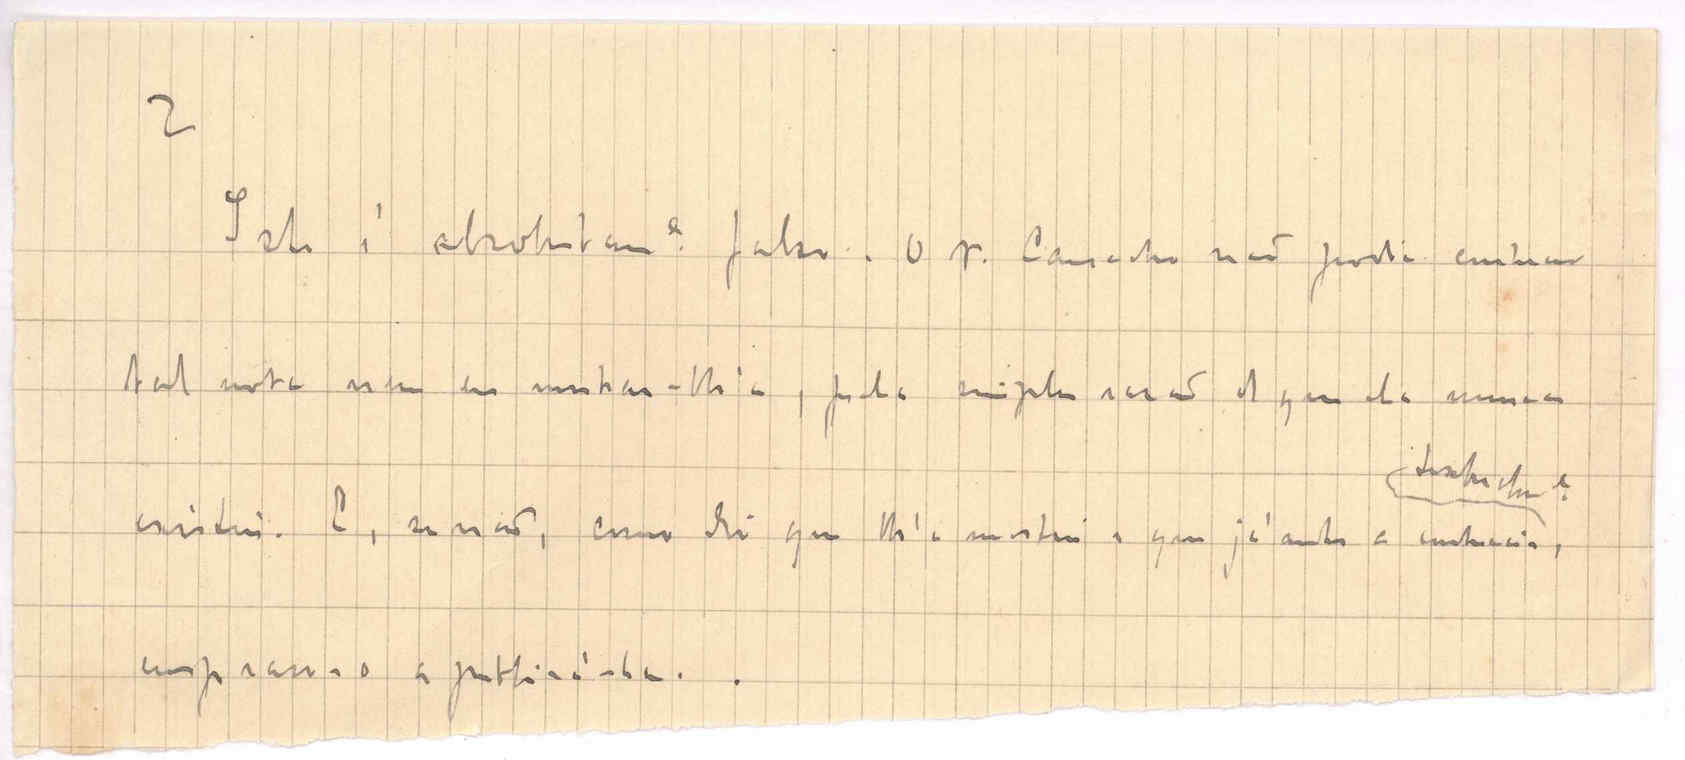 2
Isto é absolutam.e falso. O Sr. Camacho não podia conhecer
tal nota nem eu mostrar-lh'a, pela simples razão de que ela nunca
existiu. E, se não, como diz que lh'a mostrei e que já antes a conhecia,
empraso-o a publicá-la.